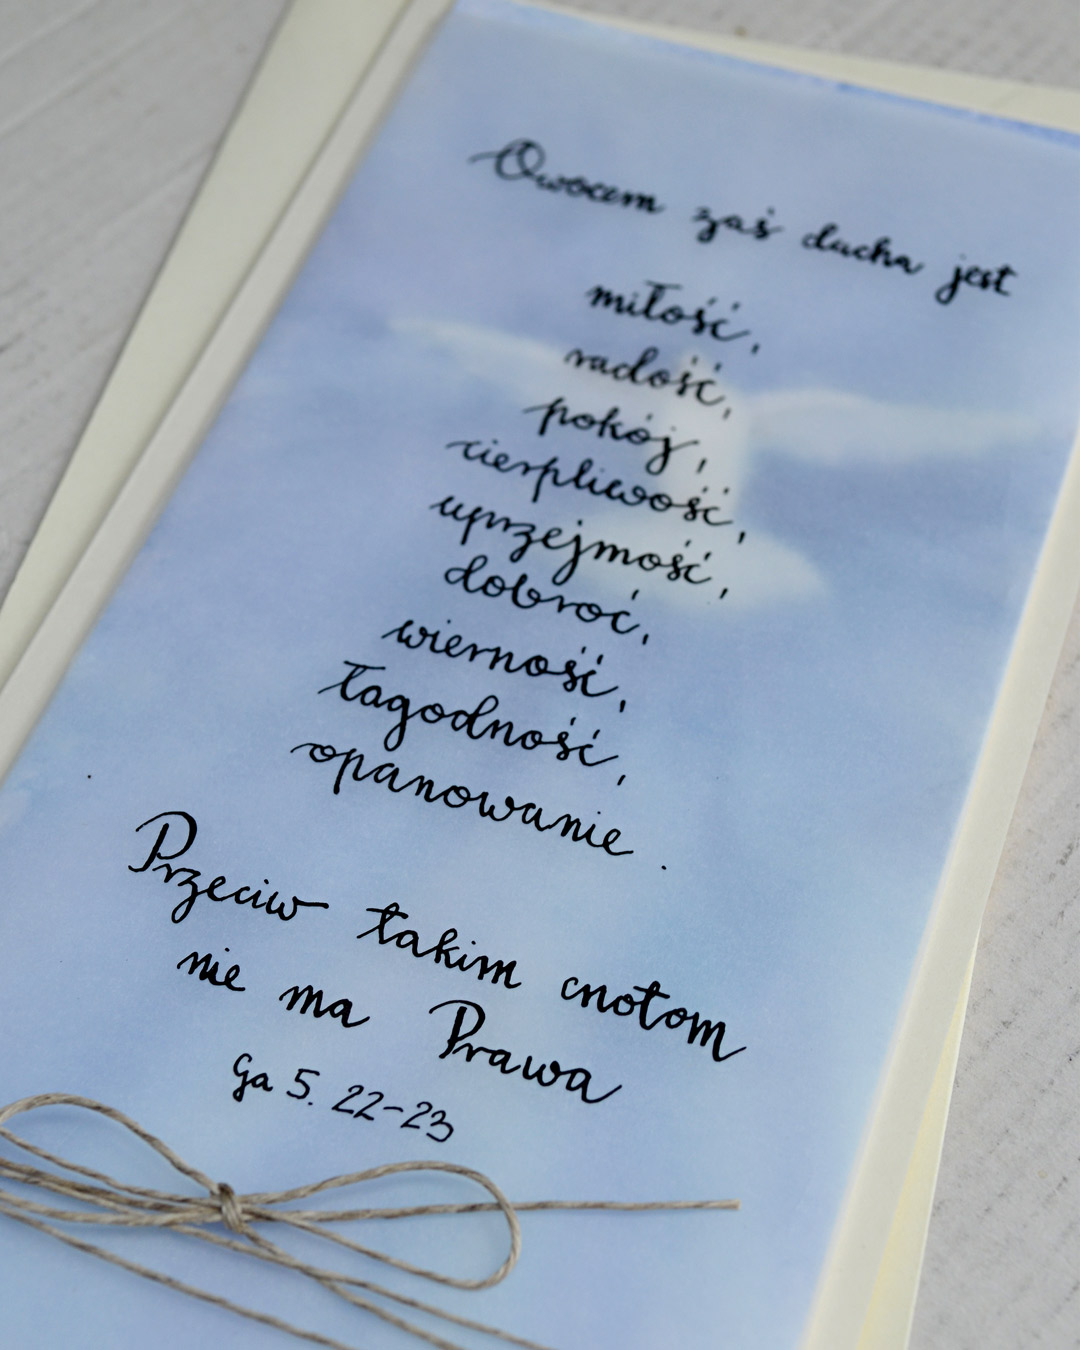 Owocem zaś ducha jest
miłość,
radość,
pokój,
cierpliwość,
uprzejmość,
dobroć,
wierność,
łagodność,
opanowanie.
Przeciw takim cnotom
nie ma Prawa
Ga 5. 22-23